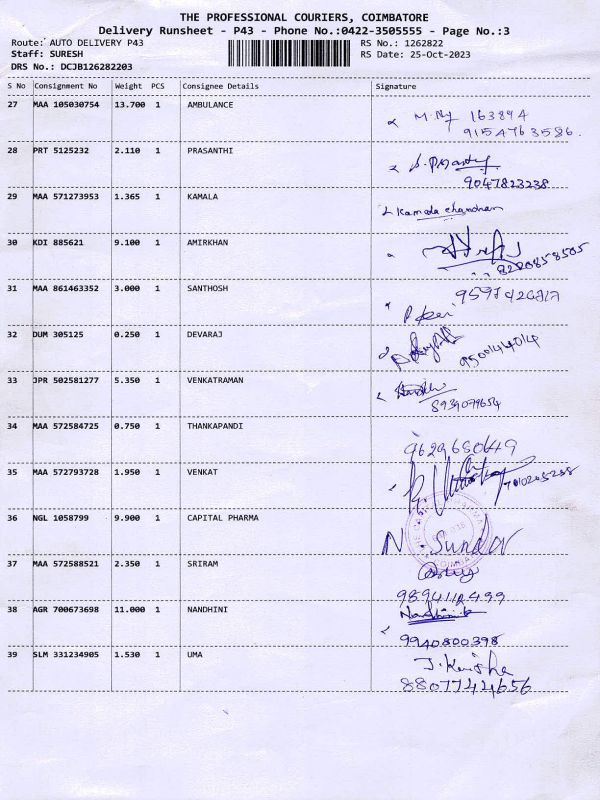 THE PROFESSIONAL COURIERS, COIMBATORE
Delivery Runsheet - P43 - Phone No.:0422-3505555 - Page No.:3
Route: AUTO DELIVERY P43 RS No.: 1262822
Staff: SURESH RS Date: 25-Oct-2023
DRS No.: DCJB126282203
S No Consignment No Weight PCS Consignee Details Signature
27 MAA 105030754 13.700 1 AMBULANCE 163894
9154763586.
28 PRT 5125232 2.110 1 PRASANTHI
9047823238
29 MAA 571273953 1.365 1 KAMALA Kamala chandran
30 KDI 885621 9.100 1 AMIRKHAN
8220858505
31 MAA 861463352 3.000 1 SANTHOSH
32 DUM 305125 0.250 1 DEVARAJ
9500144014
33 JPR 502581277 5.350 1 VENKATRAMAN
8939079654
34 MAA 572584725 0.750 1 THANKAPANDI
9629680649
35 MAA 572793728 1.950 1 VENKAT
36 NGL 1058799 9.900 1 CAPITAL PHARMA
N. Sundar
37 MAA 572588521 2.350 1 SRIRAM
38 AGR 700673698 11.000 1 NANDHINI
9940800398
39 SLM 331234905 1.530 1 UMA
8807744656